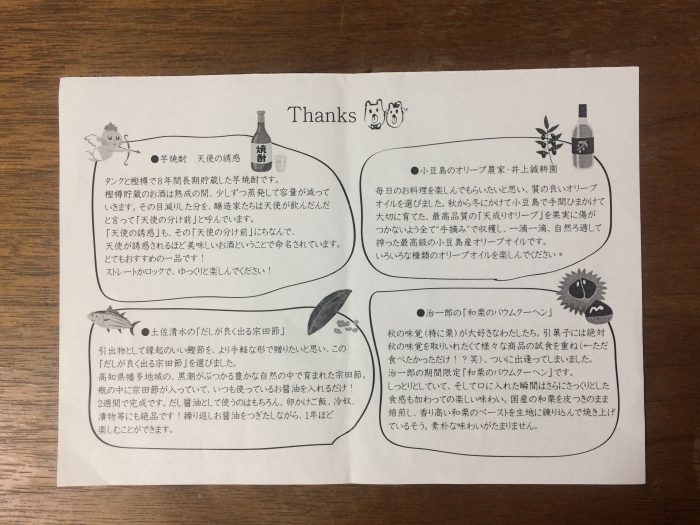 Thanks
焼酎
●芋焼酎 天使の誘惑
タンクと樫樽で8年間長期貯蔵した芋焼酎です。
樫樽貯蔵のお酒は熟成の間、少しずつ蒸発して容量が減って
いきます。その目減りした分を、醸造家たちは天使が飲んだんだ
と言って「天使の分け前」と呼んでいます。
「天使の誘惑」も、その「天使の分け前」にちなんで、
天使が誘惑されるほど美味しいお酒ということで命名されています。
とてもおすすめの一品です!
ストレートかロックで、ゆっくりと楽しんでください!
●小豆島のオリーブ農家・井上誠耕園
毎日のお料理を楽しんでもらいたいと思い、質の良いオリーブ
オイルを選びました。秋から冬にかけて小豆島で手間ひまかけて
大切に育てた、最高品質の「天成りオリーブ」を果実に傷が
つかないよう全て“手摘み”で収穫し、一滴一滴、自然ろ過して
搾った最高級の小豆島産オリーブオイルです。
いろいろな種類のオリーブオイルを楽しんでください*
●土佐清水の「だしが良く出る宗田節」
引出物として縁起のいい鰹節を、より手軽な形で贈りたいと思い、この
「だしが良く出る宗田節」を選びました。
高知県幡多地域の、黒潮がぶつかる豊かな自然の中で育まれた宗田節。
瓶の中に宗田節が入っていて、いつも使っているお醤油を入れるだけ!
2週間で完成です。だし醤油として使うのはもちろん、卵かけご飯、冷奴、
漬物等にも絶品です!繰り返しお醤油をつぎたしながら、1年ほど
楽しむことができます。
●治一郎の「和栗のバウムクーヘン」
秋の味覚(特に栗)が大好きなわたしたち。引菓子には絶対
秋の味覚を取りいれたくて様々な商品の試食を重ね(ーただ
食べたかっただけ!?笑)、ついに出逢ってしまいました。
治一郎の期間限定「和栗のバウムクーヘン」です。
しっとりとしていて、そして口に入れた瞬間はさらにさっくりとした
食感も加わっての楽しい味わい。国産の和栗を皮つきのまま
焙煎し、香り高い和栗のペーストを生地に練り込んで焼き上げ
ているそう。素朴な味わいがたまりません。